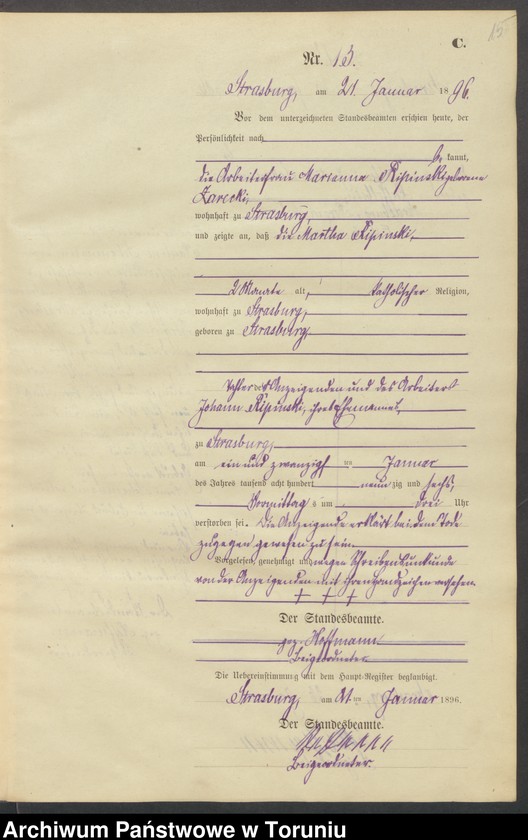 15
C.
Nr. 13.
Strasburg, am 21. Januar 1896.
Vor dem unterzeichneten Standesbeamten erschien heute, der
Persönlichkeit nach
be kannt,
die Arbeiterfrau Marianna Kipinski geborene
Zarecki,
wohnhaft zu Strasburg,
und zeigte an, daß die Martha Kipinski,
2 Monate alt, katholischer Religion,
wohnhaft zu Strasburg,
geboren zu Strasburg,
Tochter der Anzeigenden und des Arbeiters
Johann Kipinski, ihres Ehemannes,
zu Strasburg,
am ein und zwanzigsten Januar
des Jahres tausend acht hundert neunzig und sechs,
Vormittags um drei Uhr
verstorben sei. Die Anzeigende erklärt bei dem Tode
zugegen gewesen zu sein.
Vorgelesen, genehmigt und wegen Schreibensunkunde
von der Anzeigenden mit ihren Handzeichen versehen.
+ + +
Der Standesbeamte.
gez. Hoffmann
Beigeordneter
Die Uebereinstimmung mit dem Haupt-Register beglaubigt.
Strasburg, am 21. ten Januar 1896.
Der Standesbeamte.
Hoffmann
Beigeordneter.
Archiwum Państwowe w Toruniu